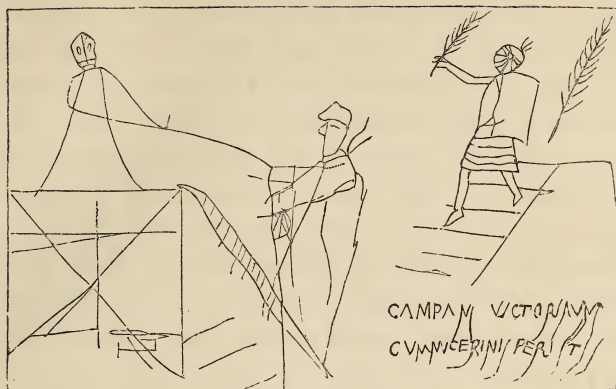 CAMPANI VICTORIA VNA
CVM NVCERINIS PERISTIS